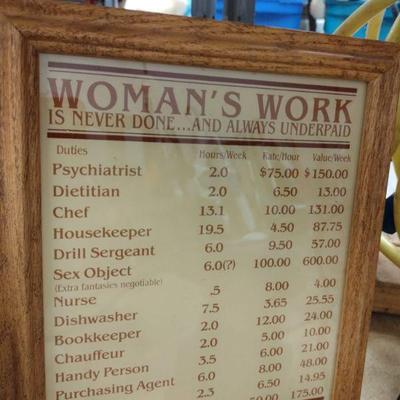 WOMAN'S WORK
IS NEVER DONE...AND ALWAYS UNDERPAID
Duties Hours/Week Rate/Hour Value/Week
Psychiatrist 2.0 $75.00 $150.00
Dietitian 2.0 6.50 13.00
Chef 13.1 10.00 131.00
Housekeeper 19.5 4.50 87.75
Drill Sergeant 6.0 9.50 57.00
Sex Object 6.0(?) 100.00 600.00
(Extra fantasies negotiable)
Nurse .5 8.00 4.00
Dishwasher 7.5 3.65 25.55
Bookkeeper 2.0 12.00 24.00
Chauffeur 2.0 5.00 10.00
Handy Person 3.5 6.00 21.00
Purchasing Agent 6.0 8.00 48.00
2.3 6.50 14.95
175.00